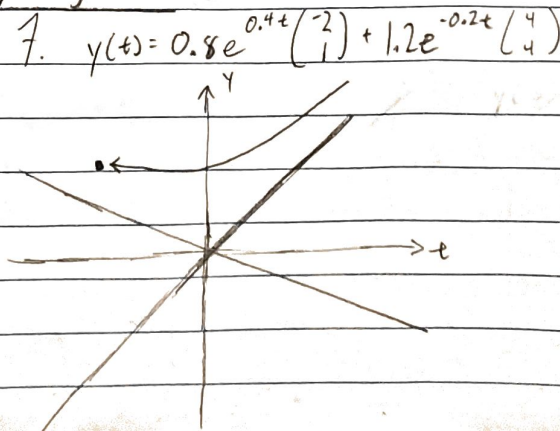 7. y(t) = 0.8e^{0.4t} \binom{-2}{1} + 1.2e^{-0.2t} \binom{4}{4}
Y
t